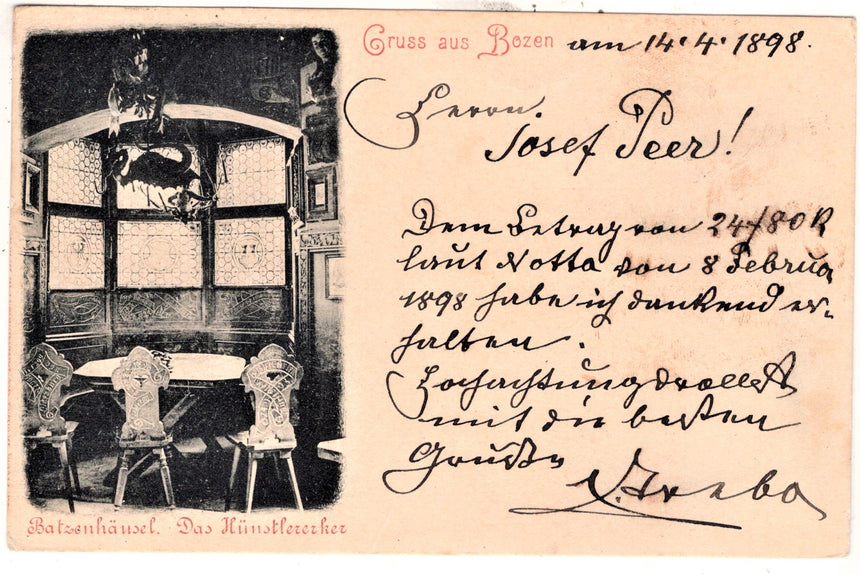 Gruss aus Bozen am 14. 4. 1898.
Herrn
Josef Peer!
Dem Betrag von 24/80 R
laut Notta von 8 Februa
1898 habe ich dankend er-
halten.
Hochachtungsvollst
mit die besten
Grüße
Batzenhäusel. Das Künstlererker